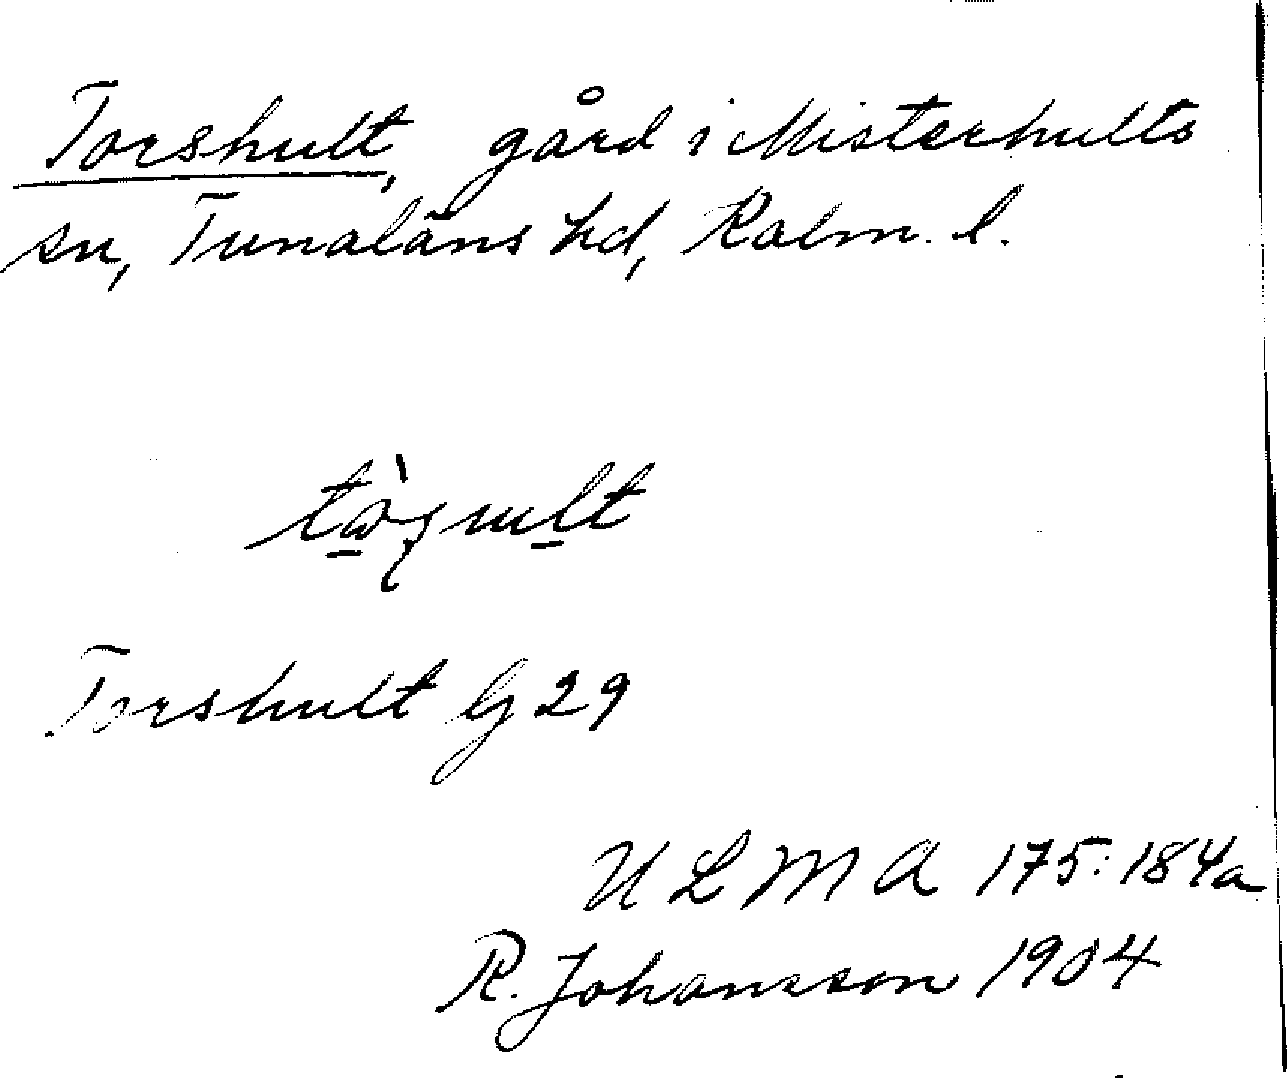 Torshult, gård i Misterhults
sn, Tunaläns hd, Kalm. l.
Torshult G 29
ULMA 175:184a
R. Johansson 1904